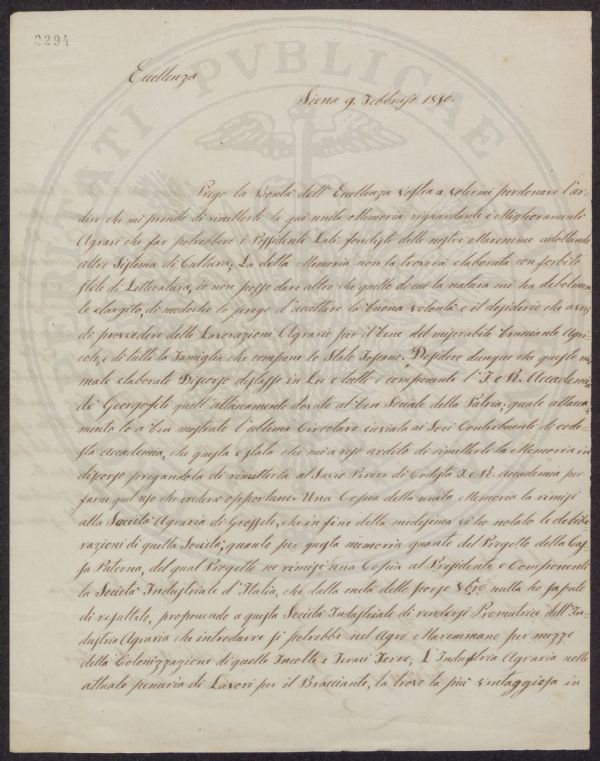 2294
PROSPERITATI PVBLICAE
Eccellenza
Siena 9. Febbrajo 1850.
Prego la Bontà dell'Eccellenza Vostra a volermi perdonare l'ar-
dire che mi prendo di rimetterli la qui unita Memoria riguardante i Miglioramenti
Agrari che far potrebbero i Possidenti Lati-fondisti delle nostre Maremme adottando
altro Sistema di Cultura; La detta Memoria non la troverà elaborata con forbito
stile di Letteratura, io non posso dare altro che quello di cui la natura mi ha debolmen
te elargito, di modoche la prego d'accettare la buona volontà e il desiderio che avrei
di provvedere delle Lavorazioni Agrarie per il bene del miserabile bracciante Agri-
colo, e di tutta la Famiglia che compone lo Stato Tosano. Desidero dunque che questo
male elaborato Discorso destasse in Lei e tutti i componenti l'I. e R. Accademia
dei Georgofili quell'attaccamento dovuto al ben Sociale della Patria; quale attacca-
mento lo à ben mostrato l'ultima Circolare inviata ai Soci Contribuenti di code-
sta Accademia, che questa è stata che mi à reso ardito di rimetterli la Memoria in
discorso pregandola di rimetterla al Savio Parere di Codesta I. e R. Accademia per
farne quel uso che crederà opportuno. Una Copia della unita Memoria la rimisi
alla Società Agraria di Grosseto, che in fine della medesima vi ho notato le delibe-
razioni di quella Società; quanto per questa memoria quanto del Progetto della Cas-
sa Paterna, del qual Progetto ne rimisi una Copia al Presidente e Componenti
la Società Industriale d'Italia, che dalla metà dello scorso 8bre nulla ho saputo
di resultato, proponendo a questa Società Industriale di rendersi Promotrice dell'In-
dustria Agraria che introdurre si potrebbe nel Agro Maremmano per mezzo
della Colonizzazione di quelle Incolte e Terre; L'Industria Agraria nella
attuale penuria di Lavori per il Bracciante, la trovo la più vantaggiosa in